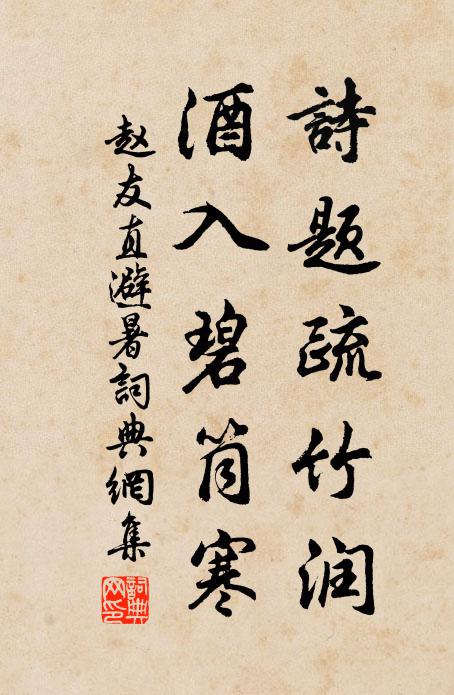 詩題疏竹润
酒入碧筒寒
赵友直避暑詞典網集
詞典網印